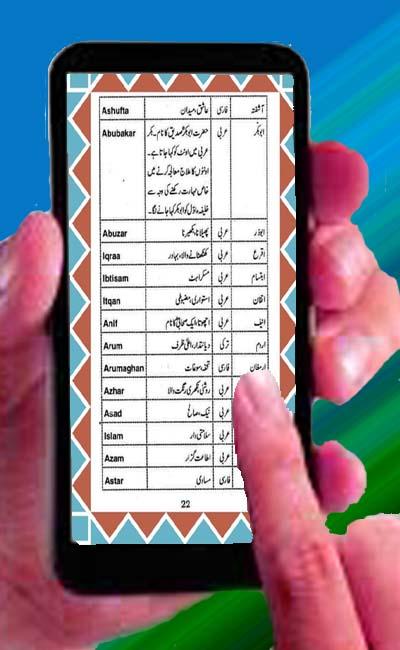 آشفتہ فارسی Ashufta
ابوبکر عربی حضرت ابوبکر صدیق کا نام۔ بکر Abubakar
عربی میں اونٹ کو کہا جاتا ہے۔
اونٹوں کا علاج معالجہ کرنے میں
خاص مہارت رکھنے کی وجہ سے
خلیفہ اول کو ابوبکر کہا جانے لگا۔
ابوذر عربی پھیلانا، بکھیرنا Abuzar
اقرع عربی کھٹکھٹانے والا، بہادر Iqraa
ابتسام عربی مسکراہٹ Ibtisam
اتقان عربی استواری، مضبوطی Itqan
انیف عربی اچھوتا، ایک صحابی کا نام Anif
ارم ترکی دیانتدار، اعلیٰ ظرف Arum
ارمغان فارسی تحفہ، سوغات Arumaghan
عربی روشنی، نکھری رنگت والا Azhar
عربی نیک، صالح Asad
عربی سلامتی دار Islam
عربی اطاعت گزار Azam
فارسی مساوی Astar
22